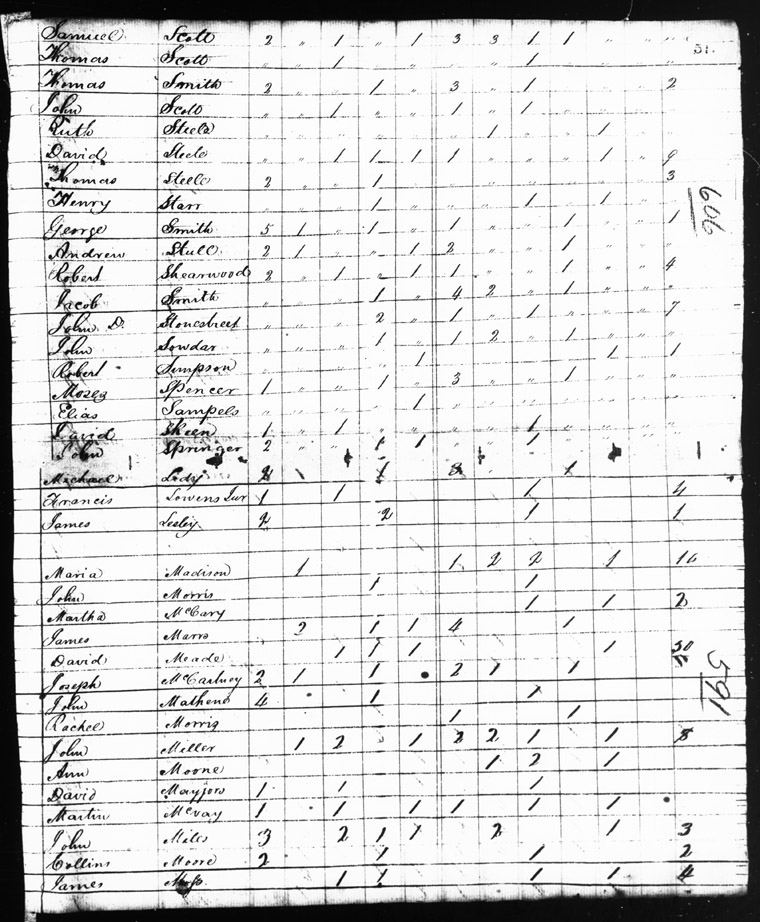 51.
Samuel Scott 2 " 1 " 1 3 3 1 1 " " "
Thomas Scott " " 1 " " " " 1 " " " "
Thomas Smith 2 " " 1 " 3 " 1 " " " 2
John Scott " " 1 " " 1 " 1 " " " "
Ruth Steele " " " " " " 1 " " 1 " "
David Steele " " 1 1 1 1 " " " 1 " 9
Thomas Steele 2 " " 1 " " " " " " " 3
Henry Starr " " " 1 " " " 1 " 1 " "
George Smith 5 1 " 1 " 1 " " 1 " " 1
Andrew Stull 2 1 " " 1 2 " " 1 " " "
Robert Shearwood 2 " 1 " 1 1 " " 1 " " 4
Jacob Smith " " " 1 " 4 2 " 1 " " "
John D. Stonestreet " " " 2 " 1 " 1 " " " 7
John Sowdar " " " 1 " 1 2 " 1 " " "
Robert Simpson " " " " 1 " " " " 1 " 1
Moses Spencer 1 " " 1 " 3 " " 1 " " "
Elias Sampels " " " " 1 " " " " " " "
David Skeen 1 " 1 " " " " 1 " " " "
John Springer 2 " " 1 1 " " 1 " " " "
Michael 1 1
Francis 1 1 1 4
James Lesley 2 2 1 1
Maria Madison 1 1 2 2 1 16
John Morris 1 1
Martha McCary 1 1 2
James Marrs 2 1 1 4 1
David Meade 1 1 1 1 50
Joseph McCartney 2 1 1 2 1 1
John Mathene 4 1 1
Rachel Morris 1 1
John Miller 1 2 1 2 2 1 1 8
Ann Moone 1 2 1
David Mayjors 1 1 1
Martin McVay 1 1 1 1 1 1
John Miles 3 2 1 1 2 1 3
Collins Moore 2 1 1 2
James 1 1 1 1 4
606
591